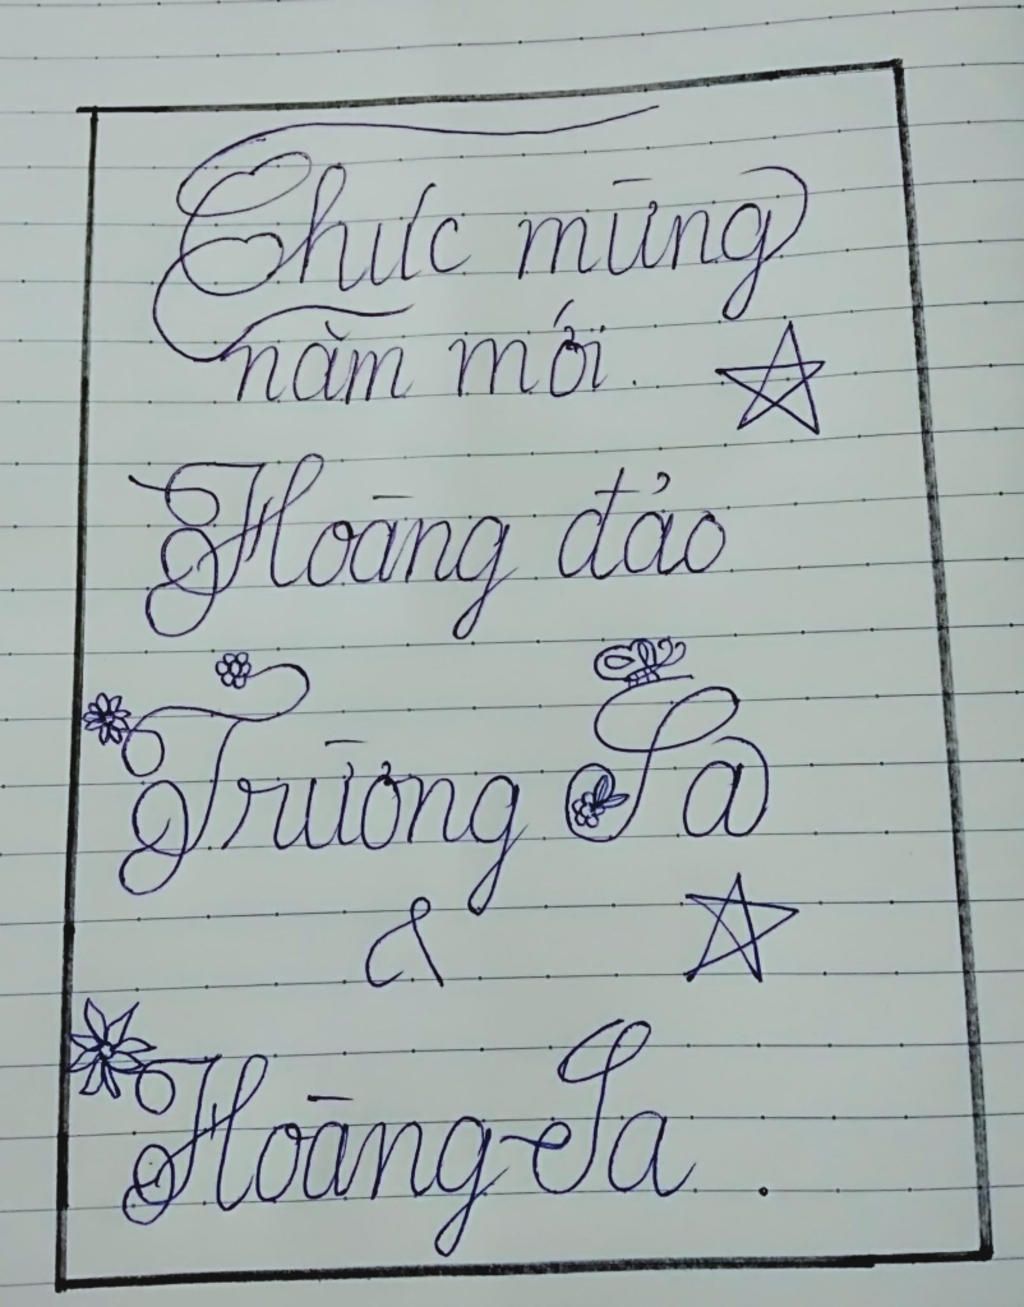 Chức mừng
năm mới.
Hoàng đảo
Trường Sa
&
Hoàng Sa.